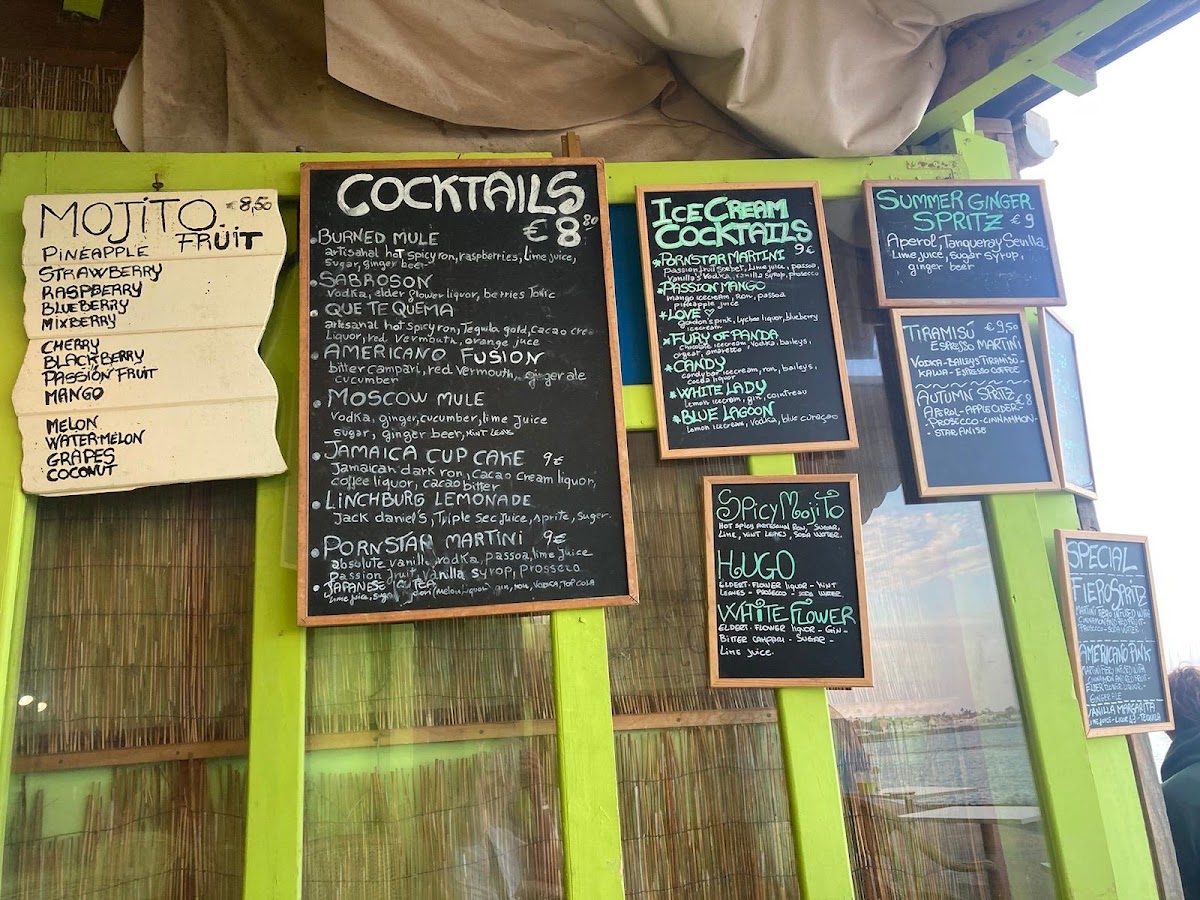 MOJITO
€8,50
FRUIT
PINEAPPLE
STRAWBERRY
RASPBERRY
BLUEBERRY
MIXBERRY
CHERRY
BLACKBERRY
PASSION FRUIT
MANGO
MELON
WATERMELON
GRAPES
COCONUT
COCKTAILS
€8
BURNED MULE
artisanal hot spicy ron, raspberries, lime juice,
sugar, ginger beer
SABROSON
vodka, elder flower liquor, berries Tonic
QUE TE QUEMA
artesanal hot spicy ron, Tequila gold, cacao
liquor, red vermouth, orange juce
AMERICANO FUSION
bitter campari, red vermouth, ginger ale
cucumber
MOSCOW MULE
Vodka, ginger, cucumber, lime juice
sugar, ginger beer,
JAMAICA CUP CAKE 9€
Jamaican dark ron, cacao cream liquor,
coffee liquor, cacao bitter
LINCHBURG LEMONADE
Jack daniel's, Triple sec juice, sprite, suger.
PORNSTAR MARTINI 9€
absolute vanilla vodka, passoa, lime juice
Passion fruit, vanilla syrop, prossero
JAPANESE ICE TEA
lime juice, (Melon liquor) gin, ron, vodka, top cola
ICE CREAM
COCKTAILS
9€
*PORNSTAR MARTINI
Passion fruit sorbet, lime juice, passoa,
Vanilla's vodka, vanilla syrop, prosecco
*PASSION MANGO
mango icecream, ron, passoa
pineapple juice
*LOVE ♡
gordon's pink, lychee liquor, blueberry
icecream
*FURY OF PANDA
chocolate icecream, vodka, baileys,
orgeat, amaretto
*CANDY
candybar icecream, ron, baileys,
cacao liquor
*WHITE LADY
Lemon icecream, gin, cointreau
*BLUE LAGOON
Lemon icecream, vodka, blue curaçao
SUMMER GINGER
SPRITZ €9
Aperol, Tanqueray Sevilla,
Lime juice, sugar syrup,
ginger beer
TIRAMISÚ €9,50
ESPRESSO MARTINI
VODKA-BAILEYS TIRAMISÚ-
KALUA-ESPRESSO COFFEE
AUTUMN SPRITZ
€8
APEROL-APPLE CIDER-
-PROSECCO-CINNAMON-
-STAR ANISE
SPICY MOJITO
HOT SPICY ARTESANAL RON, SUGAR,
LIME, MINT LEAVES, SODA WATER.
HUGO
ELDERT-FLOWER LIQUOR - MINT
LEAVES - PROSECCO - SODA WATER
WHITE FLOWER
ELDERT-FLOWER LIQUOR - GIN -
BITTER CAMPARI - SUGAR -
LIME JUICE.
SPECIAL
FIERO SPRITZ
MARTINI FIERO INFUSED WITH
CINNAMON AND RED FRUIT-
PROSECCO-SODA WATER
AMERICANO PINK
MARTINI FIERO INFUSED WITH
CINNAMON AND RED FRUIT-
ELDER FLOWER LIQUOR-
GINGER ALE
VANILLA MARGARITA
LIME JUICE-LIQUOR 43-TEQUILA